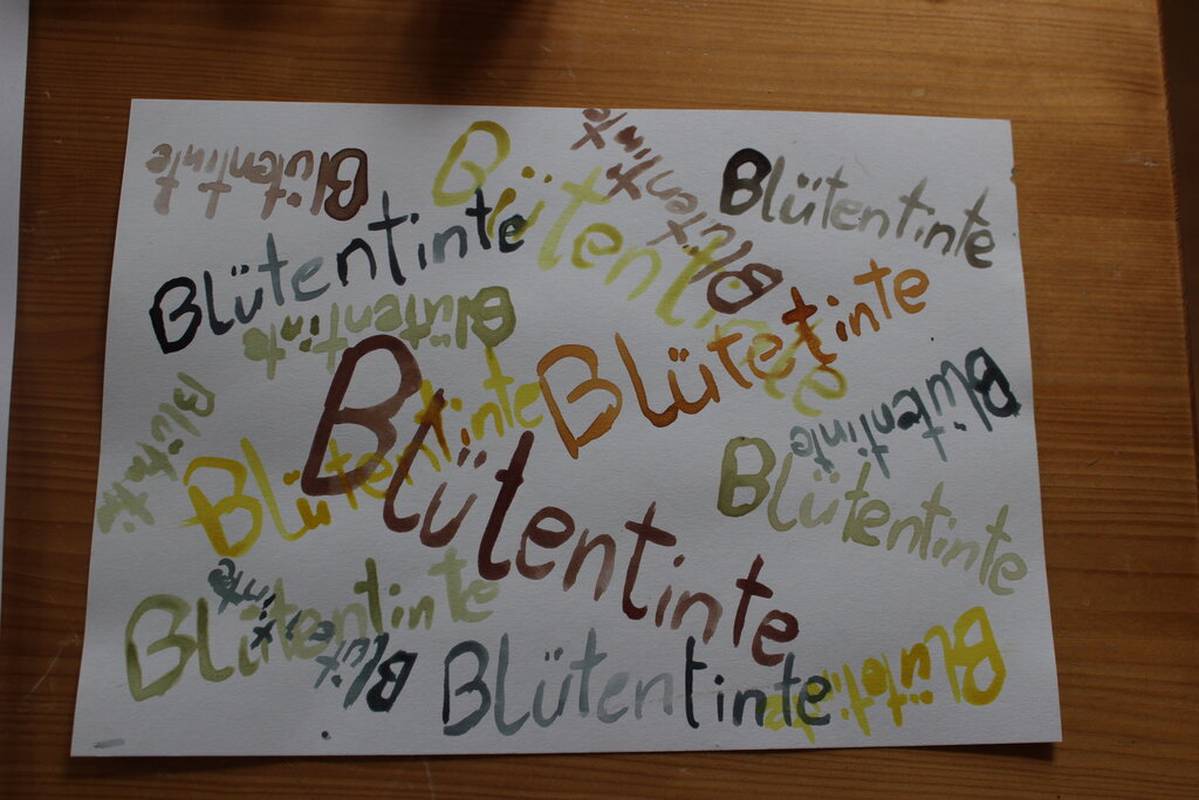 Blütentinte
Blütentinte
Blütentinte
Blütentinte
Blütentinte
Blütentinte
Blütentinte
Blütetinte
Blütentinte
Blütentinte
Blütentinte
Blütentinte
Blütentinte
Blütentinte